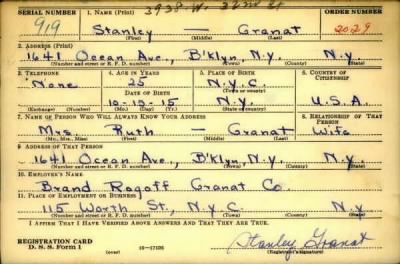 3938 W. 32nd St
SERIAL NUMBER 1. NAME (Print) ORDER NUMBER
919 Stanley — Granat 2029
(First) (Middle) (Last)
2. ADDRESS (Print)
1641 Ocean Ave., B'klyn, N.Y. N.Y.
(Number and street or R. F. D. number) (Town) (County) (State)
3. TELEPHONE 4. AGE IN YEARS 5. PLACE OF BIRTH 6. COUNTRY OF CITIZENSHIP
None 25 N.Y.C.
DATE OF BIRTH (Town or county)
10-15-15 N.Y. U.S.A.
(Exchange) (Number) (Mo.) (Day) (Yr.) (State or country)
7. NAME OF PERSON WHO WILL ALWAYS KNOW YOUR ADDRESS 8. RELATIONSHIP OF THAT PERSON
Mrs. Ruth — Granat Wife
(Mr., Mrs., Miss) (First) (Middle) (Last)
9. ADDRESS OF THAT PERSON
1641 Ocean Ave., B'klyn, N.Y. N.Y.
(Number and street or R. F. D. number) (Town) (County) (State)
10. EMPLOYER'S NAME
Brand Rogoff Granat Co
11. PLACE OF EMPLOYMENT OR BUSINESS
115 Worth St., N.Y.C N.Y.
(Number and street or R. F. D. number) (Town) (County) (State)
I AFFIRM THAT I HAVE VERIFIED ABOVE ANSWERS AND THAT THEY ARE TRUE.
REGISTRATION CARD
D. S. S. Form 1 (over) 16-17105 Stanley Granat
(Registrant's signature)